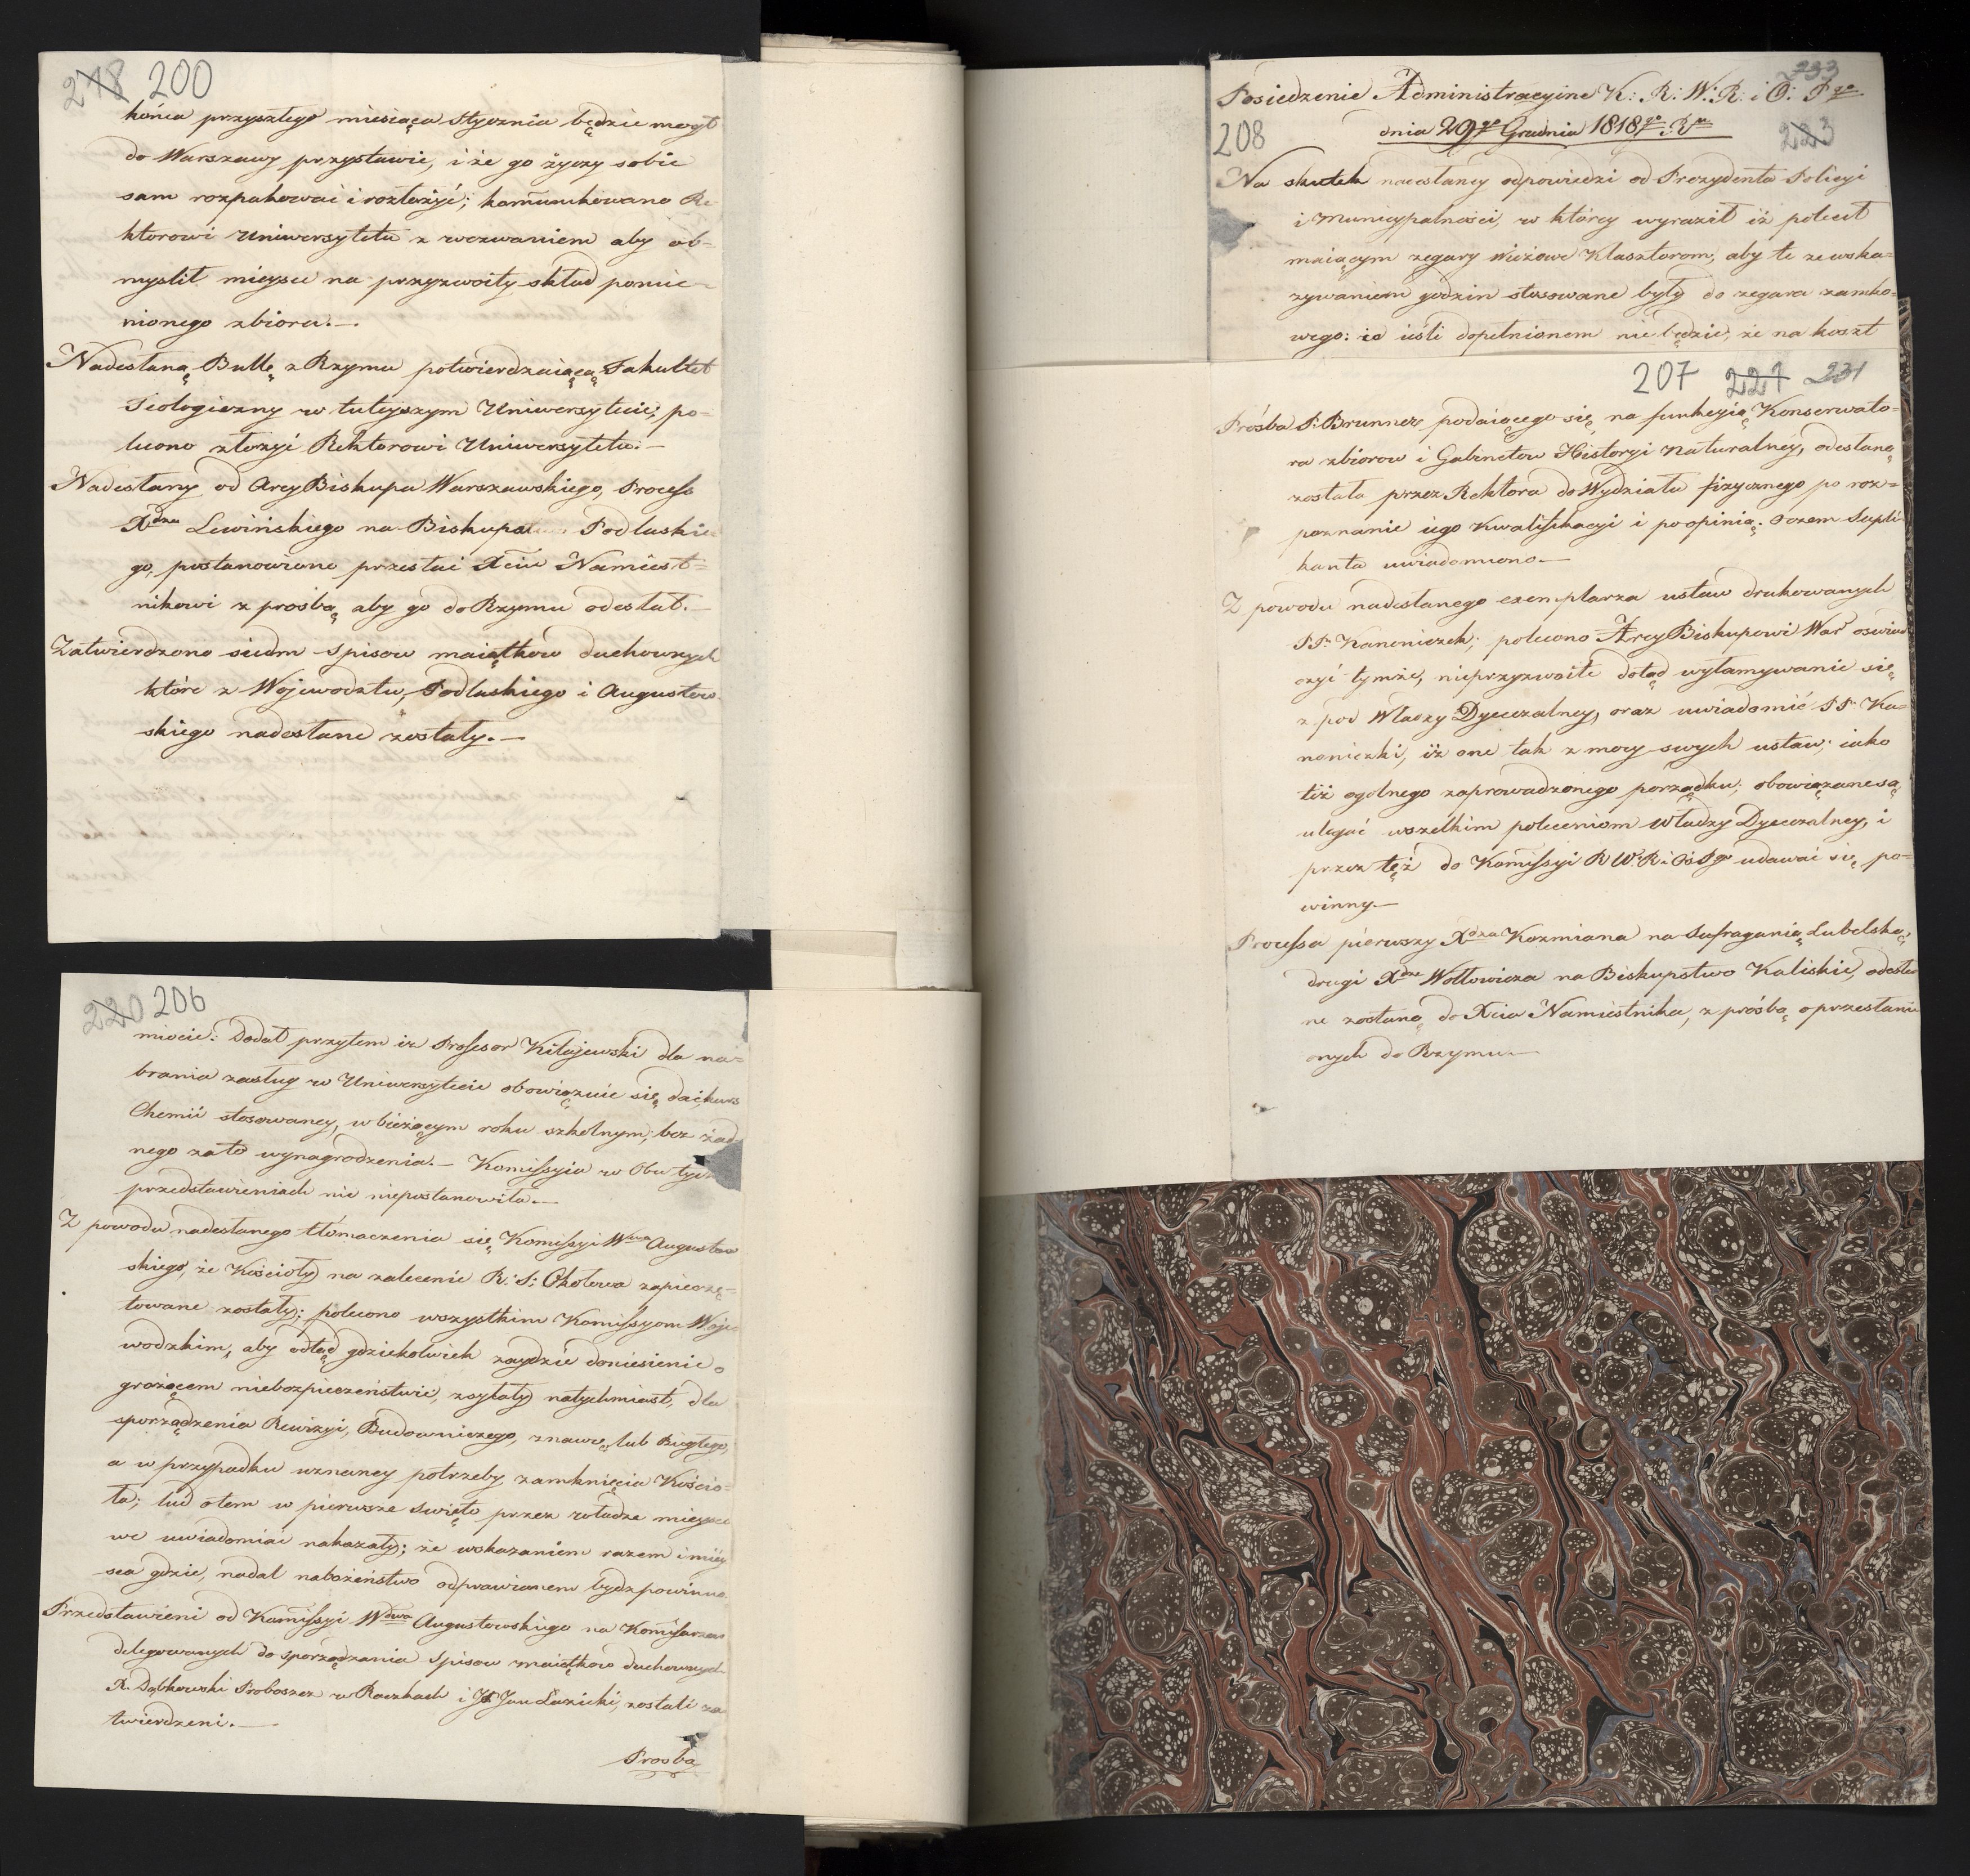 218 200
końca przyszłego miesiąca Stycznia będzie mogł
do Warszawy przystawić, i że go życzy sobie
sam rozpakować i rozłożyć; kom̃unikowano Re-
ktorowi Uniwersytetu z wezwaniem aby ob-
myslił mieysce na przyzwoity skład pomie-
nionego zbioru.—
Nadesłaną Bullę z Rzymu potwierdzaiącą Fakultet
Teologiczny w tuteyszym Uniwersytecie, po-
lecono złożyć Rektorowi Uniwersytetu.—
Nadesłany od ArcyBiskupa Warszawskiego, Process
Xdza Lewińskiego na Biskupa Podlaskie
go, postanowiono przesłać Xciu Namiest=
nikowi z prośbą aby go do Rzymu odesłał.—
Zatwierdzono siedm spisow maiątkow duchownych
które z Woiewodztw, Podlaskiego i Augustow-
skiego nadesłane zostały.—
220 206
miocie: Dodał przytem iż Professor Kitajewski dla na=
brania zasług w Uniwersytecie obowiązuie się dać kurs
Chemii stosowaney, w bieżącym roku szkolnym; bez żad-
nego za to wynagrodzenia.— Kom̃issyia w Obu tych
przedstawieniach nic niepostanowiła.—
Z powodu nadesłanego tłomaczenia się Kom̃issyi Wdztwa Augustow
skiego, że Kościoły na zalecenie R: S: Okołowa zapieczę-
towane zostały; polecono wszystkim Kom̃issyom Woje-
wodzkim, aby odtąd gdziekolwiek zaydzie doniesienie o
grożącem niebezpieczeństwie, zsyłały natychmiast, dla
sporządzenia Rewizyi, Budowniczego, znawcę lub Biegłego,
a w przypadku uznaney potrzeby zamknięcia Kościo-
ła; lud o tem w pierwsze święto przez władze mieysco
we uwiadomiać nakazały; ze wskazaniem razem i miey
sca gdzie, nadal nabożeństwo odprawianem bydz powinno.
Przedstawieni od Kom̃issyi Wdztwa Augustowskiego na Kom̃issarzow
delegowanych do sporządzania spisow maiątkow duchownych
X. Dąbkowski Proboszcz w Raczkach i JP Jan Łazicki, zostali za
twierdzeni.—
Prosba
233
Posiedzenie Administracyine K: R: W: R: i O: Pgo
208 dnia 29go Grudnia 1818go Rku 223
Na skutek nadesłaney odpowiedzi od Prezydenta Policyi
i Municypalności, w którey wyraził iż polecił
maiącym zegary wieżowe Klasztorom, aby te ze wska=
zywaniem godzin stosowane były do zegara zamko=
wego: ie iesli dopełnionem nie będzie, że na koszt
207 221 231
Prośba P. Brunner podaiącego się, na funkcyią Konserwato=
ra zbiorow i Gabinetow Historyi Naturalney, odesłaną
została przez Rektora do Wydziału fizycznego po roz=
poznanie iego Kwalifikacyi i po opinią. o czem Supli-
kanta uwiadomiono.—
Z powodu nadesłanego exemplarza ustaw drukowanych
PP. Kanoniczek; polecono ArcyBiskupowi War. oswiad
czyć tymże, nieprzyzwoite dotąd wyłamywanie się
z pod Władzy Dyecezalney, oraz uwiadomić PP. Ka=
noniczki, iż one tak z mocy swych ustaw; iako
też ogolnego zaprowadzonego porządku, obowiązane są
ulegać wszelkim poleceniom Władzy Dyecezalney, i
przez też do Kom̃issyi R W. R i O. Pgo udawać się po=
winny.—
Processa pierwszy Xdza Kozmiana na Sufraganią Lubelską,
drugi Xdza Wołłowicza na Biskupstwo Kaliskie, odesła-
ne zostaną do Xcia Namiestnika, z prośbą o przesłanie
onych do Rzymu.—